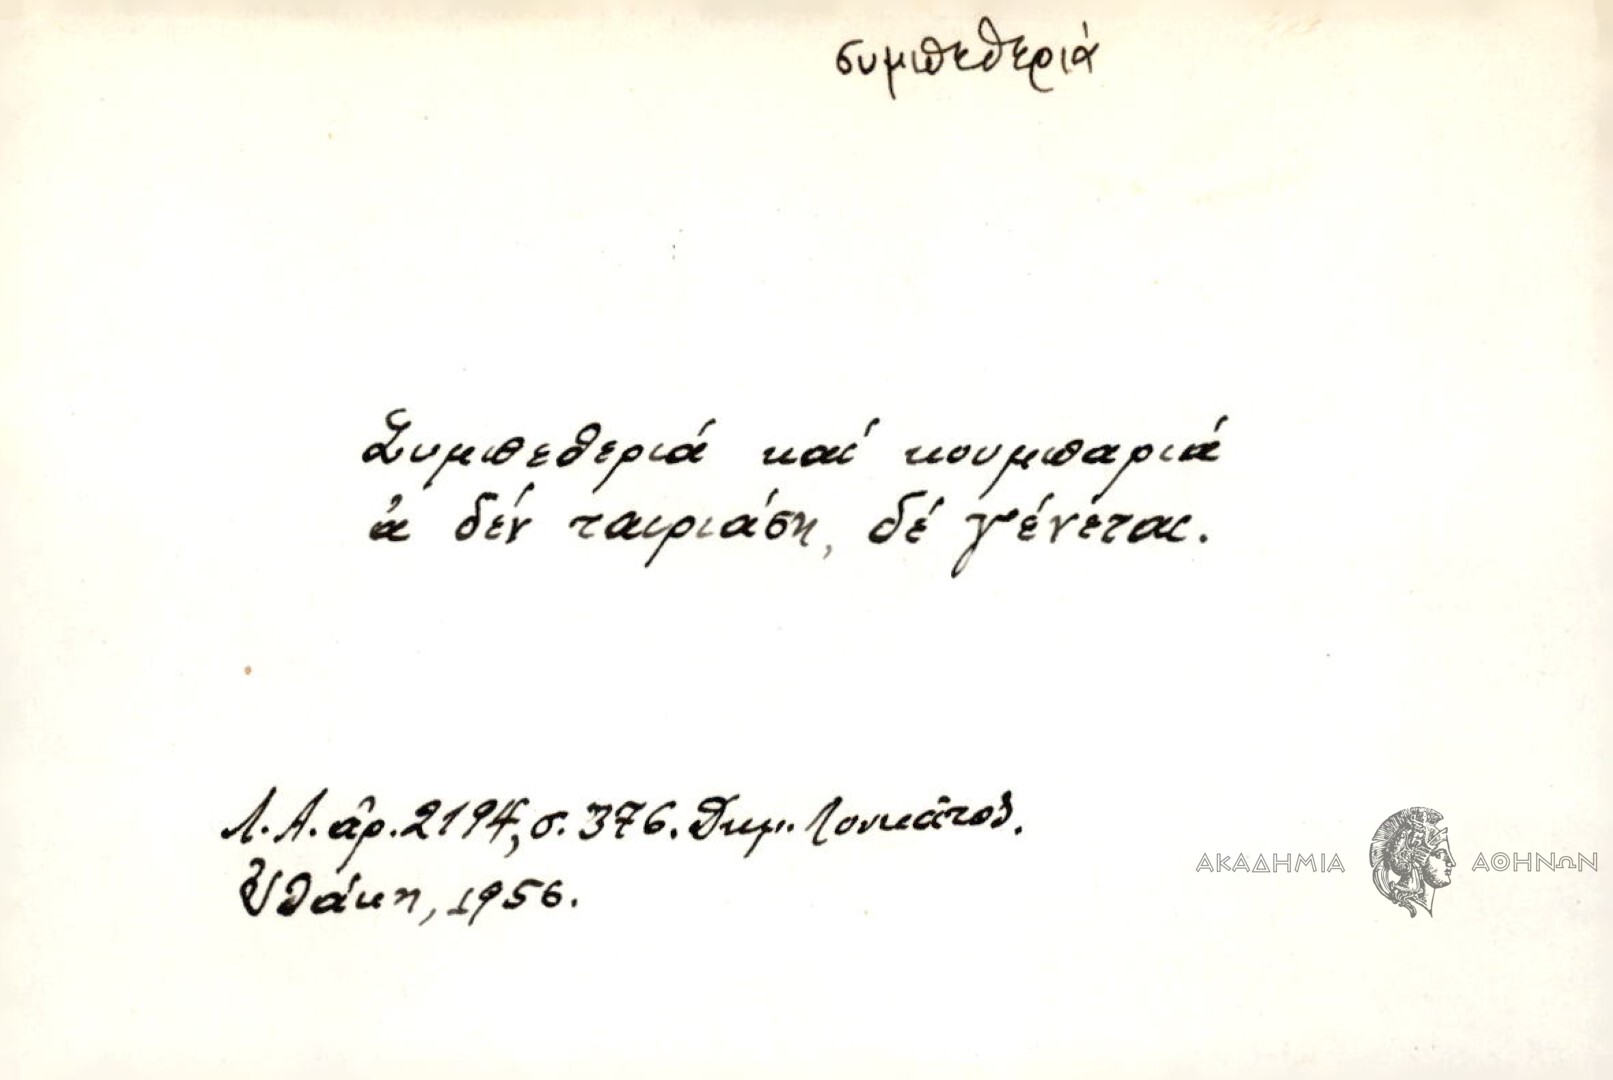 συμπεθεριά
Συμπεθεριά καί κουμπαριά
ἀ δέν ταιριάση, δέ γένεται.
Λ.Α. ἀρ. 2194, σ. 376. Δημ. Λουκᾶτος.
Ἰθάκη, 1956.
ΑΚΑΔΗΜΙΑ ΑΘΗΝΩΝ